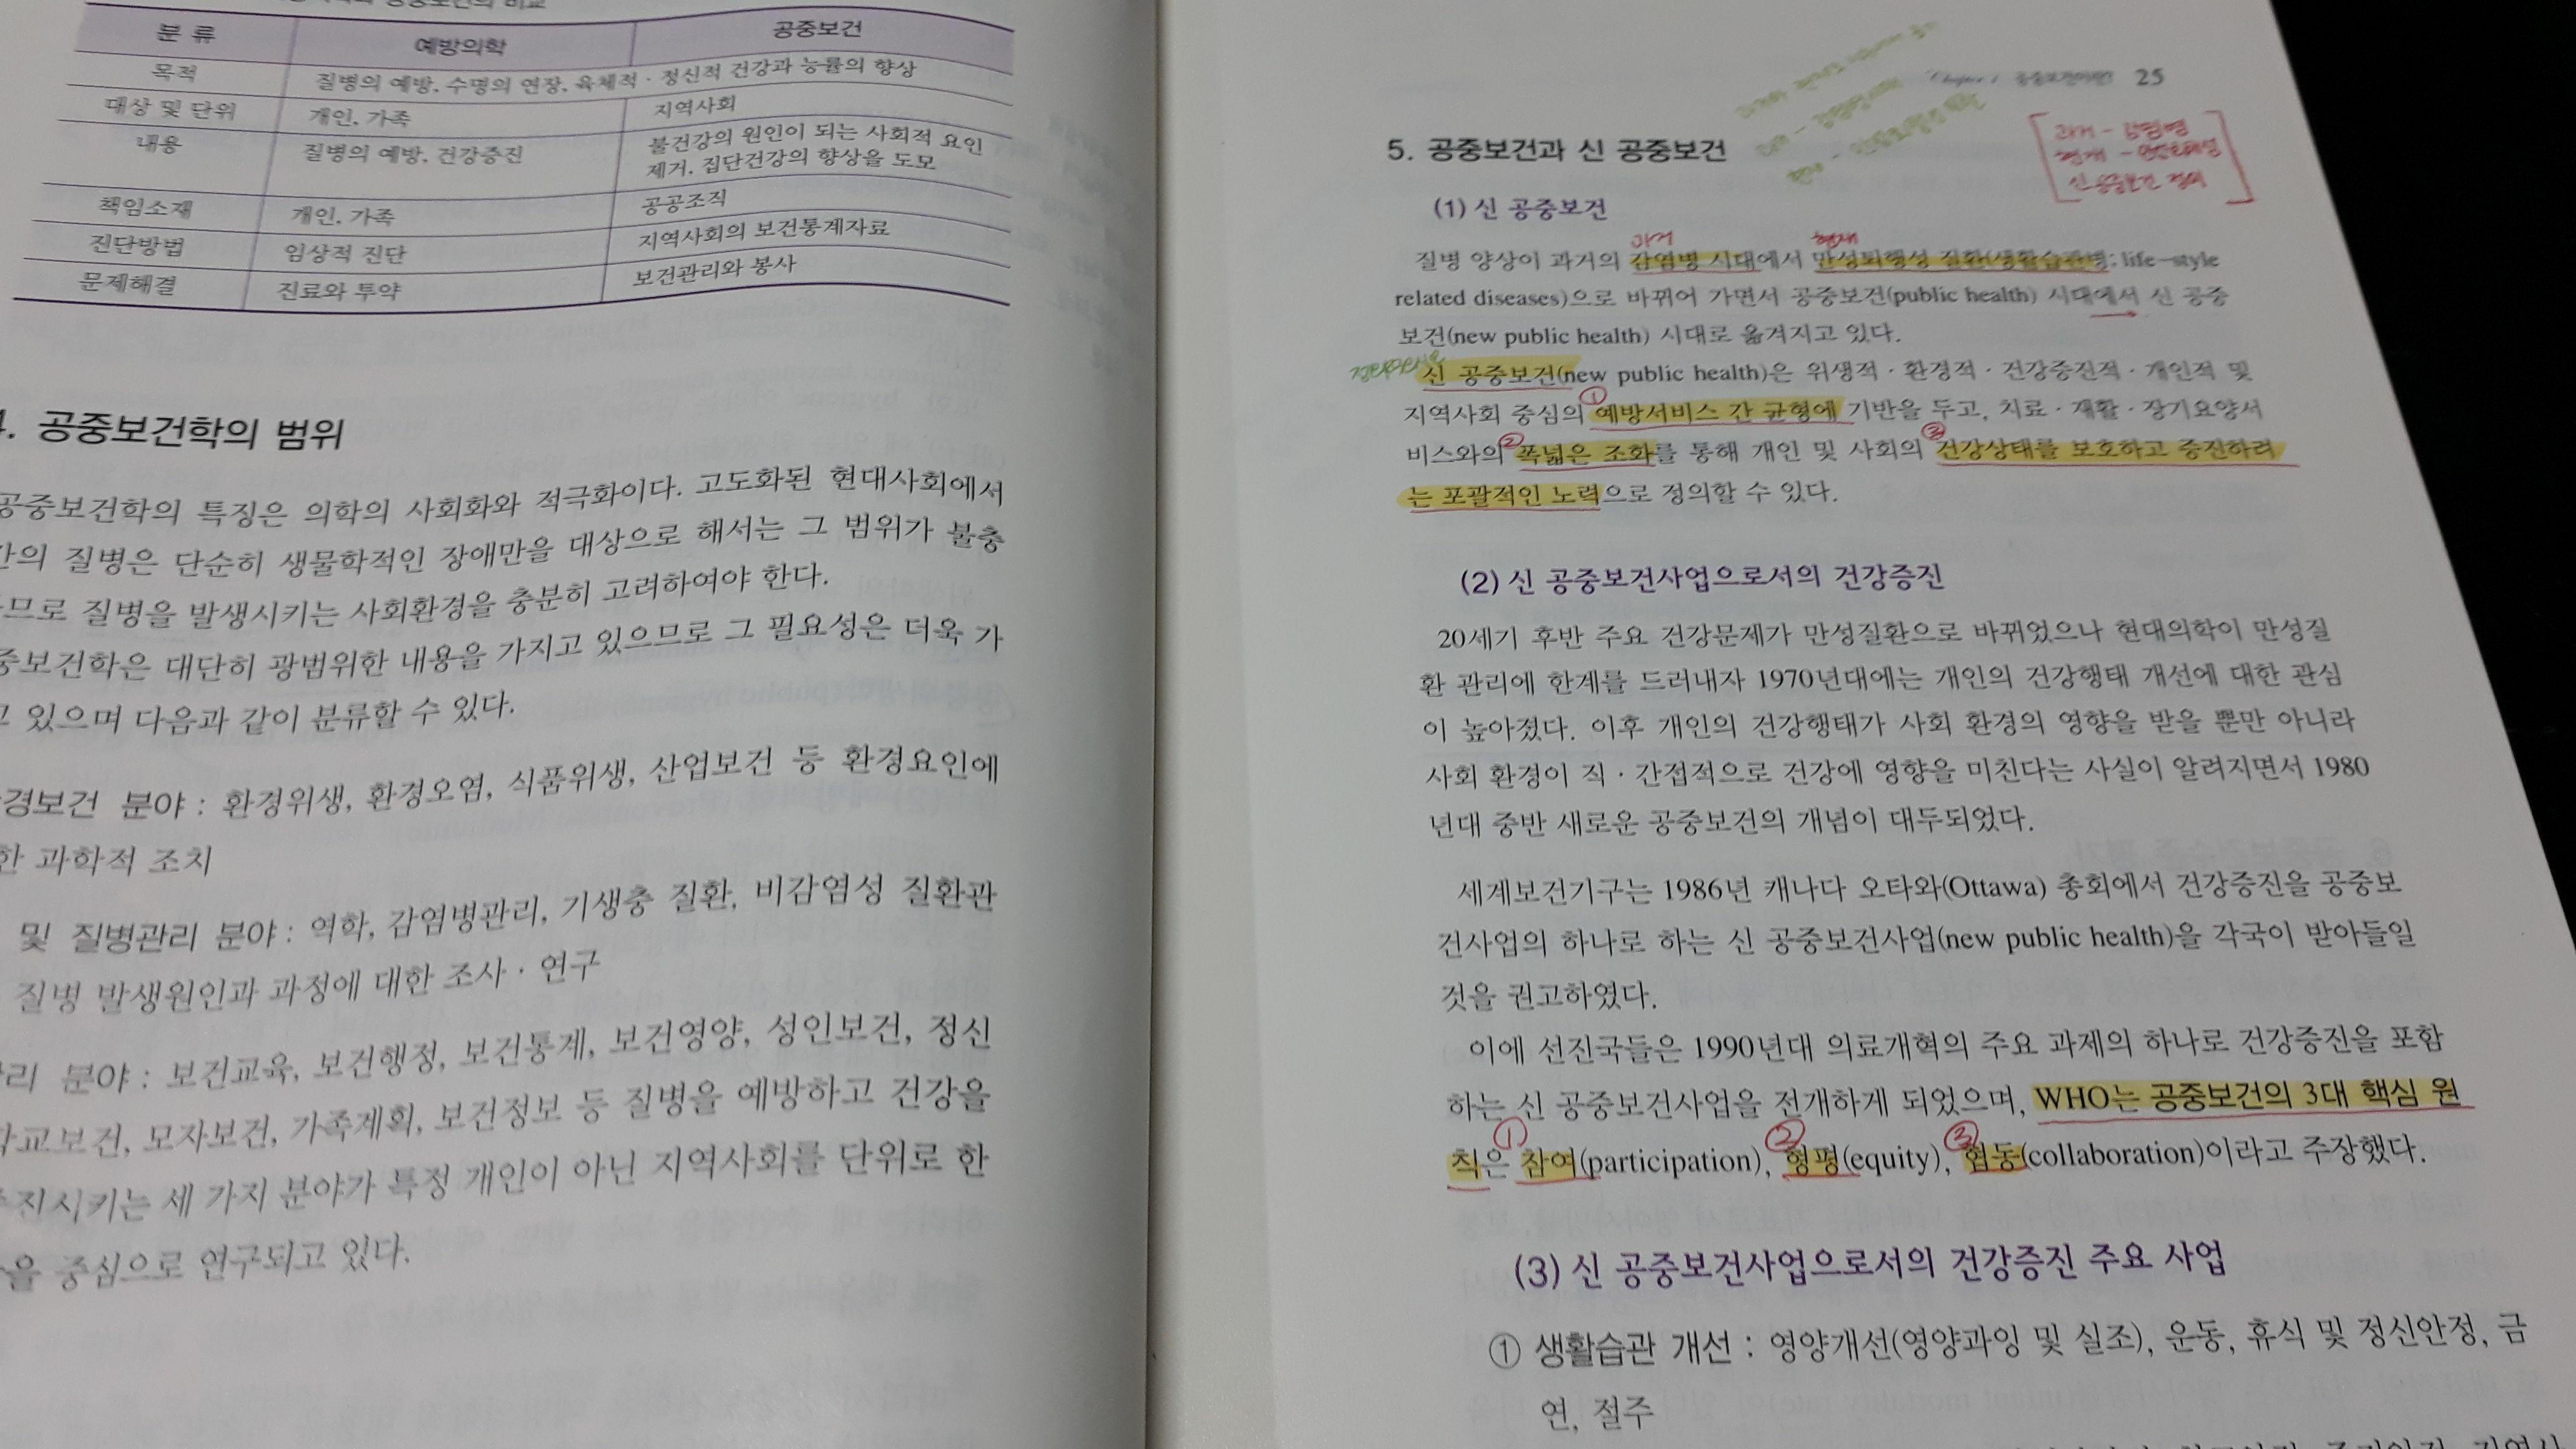 공중보건의 비교
분 류 예방의학 공중보건
목적 질병의 예방, 수명의 연장, 육체적 · 정신적 건강과 능률의 향상
대상 및 단위 개인, 가족 지역사회
내용 질병의 예방, 건강증진 불건강의 원인이 되는 사회적 요인
제거, 집단건강의 향상을 도모
책임소재 개인, 가족 공공조직
진단방법 임상적 진단 지역사회의 보건통계자료
문제해결 진료와 투약 보건관리와 봉사
4. 공중보건학의 범위
공중보건학의 특징은 의학의 사회화와 적극화이다. 고도화된 현대사회에서
간의 질병은 단순히 생물학적인 장애만을 대상으로 해서는 그 범위가 불충
므로 질병을 발생시키는 사회환경을 충분히 고려하여야 한다.
중보건학은 대단히 광범위한 내용을 가지고 있으므로 그 필요성은 더욱 가
고 있으며 다음과 같이 분류할 수 있다.
경보건 분야 : 환경위생, 환경오염, 식품위생, 산업보건 등 환경요인에
한 과학적 조치
및 질병관리 분야 : 역학, 감염병관리, 기생충 질환, 비감염성 질환관
질병 발생원인과 과정에 대한 조사 · 연구
리 분야 : 보건교육, 보건행정, 보건통계, 보건영양, 성인보건, 정신
학교보건, 모자보건, 가족계획, 보건정보 등 질병을 예방하고 건강을
진시키는 세 가지 분야가 특정 개인이 아닌 지역사회를 단위로 한
을 중심으로 연구되고 있다.
Chapter 1 공중보건이란? 25
과거 - 감염병
현재 - 만성퇴행성
신공중보건 정의
5. 공중보건과 신 공중보건
(1) 신 공중보건
과거 현재
질병 양상이 과거의 감염병 시대에서 만성퇴행성 질환(생활습관병: life-style
related diseases)으로 바뀌어 가면서 공중보건(public health) 시대에서 신 공중
보건(new public health) 시대로 옮겨지고 있다.
신 공중보건(new public health)은 위생적 · 환경적 · 건강증진적 · 개인적 및
지역사회 중심의 ① 예방서비스 간 균형에 기반을 두고, 치료 · 재활 · 장기요양서
비스와의 ② 폭넓은 조화를 통해 개인 및 사회의 ③ 건강상태를 보호하고 증진하려
는 포괄적인 노력으로 정의할 수 있다.
(2) 신 공중보건사업으로서의 건강증진
20세기 후반 주요 건강문제가 만성질환으로 바뀌었으나 현대의학이 만성질
환 관리에 한계를 드러내자 1970년대에는 개인의 건강행태 개선에 대한 관심
이 높아졌다. 이후 개인의 건강행태가 사회 환경의 영향을 받을 뿐만 아니라
사회 환경이 직 · 간접적으로 건강에 영향을 미친다는 사실이 알려지면서 1980
년대 중반 새로운 공중보건의 개념이 대두되었다.
세계보건기구는 1986년 캐나다 오타와(Ottawa) 총회에서 건강증진을 공중보
건사업의 하나로 하는 신 공중보건사업(new public health)을 각국이 받아들일
것을 권고하였다.
이에 선진국들은 1990년대 의료개혁의 주요 과제의 하나로 건강증진을 포함
하는 신 공중보건사업을 전개하게 되었으며, WHO는 공중보건의 3대 핵심 원
칙은 ① 참여(participation), ② 형평(equity), ③ 협동(collaboration)이라고 주장했다.
(3) 신 공중보건사업으로서의 건강증진 주요 사업
① 생활습관 개선 : 영양개선(영양과잉 및 실조), 운동, 휴식 및 정신안정, 금
연, 절주